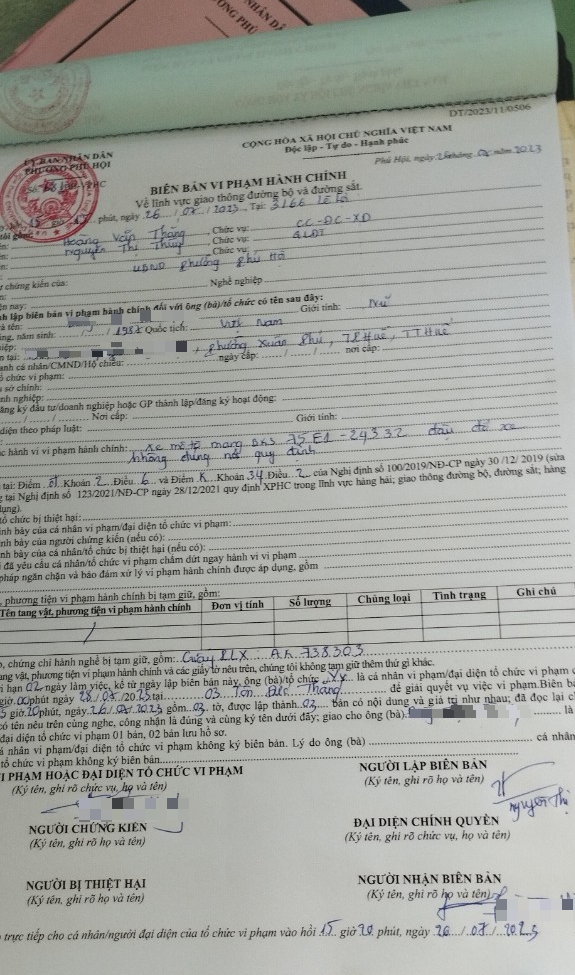 DT/2023/11/0506
CỘNG HÒA XÃ HỘI CHỦ NGHĨA VIỆT NAM
Độc lập - Tự do - Hạnh phúc
ỦY BAN NHÂN DÂN
PHƯỜNG PHÚ HỘI
Phú Hội, ngày tháng năm 2023
BIÊN BẢN VI PHẠM HÀNH CHÍNH
Về lĩnh vực giao thông đường bộ và đường sắt.
phút, ngày 26 / 07 / 2023 Tại: Lê Lợi
Hoàng Văn Thắng Chức vụ: CC-ĐC-XD
Nguyễn Thị Chức vụ:
UBND phường phú Hội
chứng kiến của: Nghề nghiệp
nh lập biên bản vi phạm hành chính đối với ông (bà)/tổ chức có tên sau đây:
à tên: Giới tính: Nữ
ng, năm sinh: Quốc tịch: Việt Nam
iệp: phường Xuân Phú, TP Huế, TT Huế
anh cá nhân/CMND/Hộ chiếu: ngày cấp: / / nơi cấp:
ổ chức vi phạm:
sở chính:
nh nghiệp:
ăng ký đầu tư/doanh nghiệp hoặc GP thành lập/đăng ký hoạt động:
Nơi cấp:
diện theo pháp luật: Giới tính:
c hành vi vi phạm hành chính: Xe mô tô mang BKS 75E1-24332 đậu đỗ xe
không đúng nơi quy định
tại: Điểm Khoản 2 Điều 6 và Điểm Khoản 34 Điều 2 của Nghị định số 100/2019/NĐ-CP ngày 30/12/2019 (sửa
g tại Nghị định số 123/2021/NĐ-CP ngày 28/12/2021 quy định XPHC trong lĩnh vực hàng hải; giao thông đường bộ, đường sắt; hàng
dụng).
tổ chức bị thiệt hại:
nh bày của cá nhân vi phạm/đại diện tổ chức vi phạm:
nh bày của người chứng kiến (nếu có):
nh bày của cá nhân/tổ chức bị thiệt hại (nếu có):
đã yêu cầu cá nhân/tổ chức vi phạm chấm dứt ngay hành vi vi phạm
pháp ngăn chặn và bảo đảm xử lý vi phạm hành chính được áp dụng, gồm
, phương tiện vi phạm hành chính bị tạm giữ, gồm:
Tên tang vật, phương tiện vi phạm hành chính Đơn vị tính Số lượng Chủng loại Tình trạng Ghi chú
, chứng chỉ hành nghề bị tạm giữ, gồm: Giấy PLX: AK 738303
ang vật, phương tiện vi phạm hành chính và các giấy tờ nêu trên, chúng tôi không tạm giữ thêm thứ gì khác.
i hạn 02 ngày làm việc, kể từ ngày lập biên bản này, ông (bà)/tổ chức là cá nhân vi phạm/đại diện tổ chức vi phạm
giờ 00 phút ngày 28/07/2023 tại 03 Tôn Đức Thắng để giải quyết vụ việc vi phạm. Biên bả
giờ 20 phút, ngày 26/07/2023 gồm 03 tờ, được lập thành 03 bản có nội dung và giá trị như nhau; đã đọc lại
có tên nêu trên cùng nghe, công nhận là đúng và cùng ký tên dưới đây; giao cho ông (bà) là
đại diện tổ chức vi phạm 01 bản, 02 bản lưu hồ sơ.
á nhân vi phạm/đại diện tổ chức vi phạm không ký biên bản. Lý do ông (bà) cá nhân
tổ chức vi phạm không ký biên bản
I PHẠM HOẶC ĐẠI DIỆN TỔ CHỨC VI PHẠM
(Ký tên, ghi rõ chức vụ, họ và tên)
NGƯỜI LẬP BIÊN BẢN
(Ký tên, ghi rõ họ và tên)
Nguyễn Thị
NGƯỜI CHỨNG KIẾN
(Ký tên, ghi rõ họ và tên)
ĐẠI DIỆN CHÍNH QUYỀN
(Ký tên, ghi rõ chức vụ, họ và tên)
NGƯỜI BỊ THIỆT HẠI
(Ký tên, ghi rõ họ và tên)
NGƯỜI NHẬN BIÊN BẢN
(Ký tên, ghi rõ họ và tên)
trực tiếp cho cá nhân/người đại diện của tổ chức vi phạm vào hồi 15 giờ 20 phút, ngày 26 / 07 / 2023